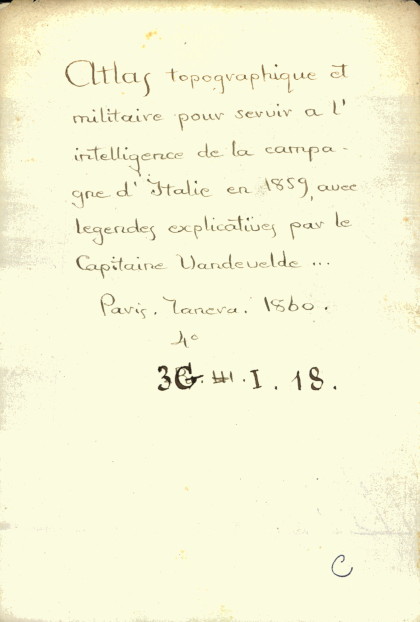 Atlas topographique et
militaire pour servir a l'
intelligence de la campa-
gne d'Italie en 1859, avec
legendes explicatives par le
Capitaine Vandevelde ...
Paris. Tanera. 1860.
4º
3G. III. I. 18.
C